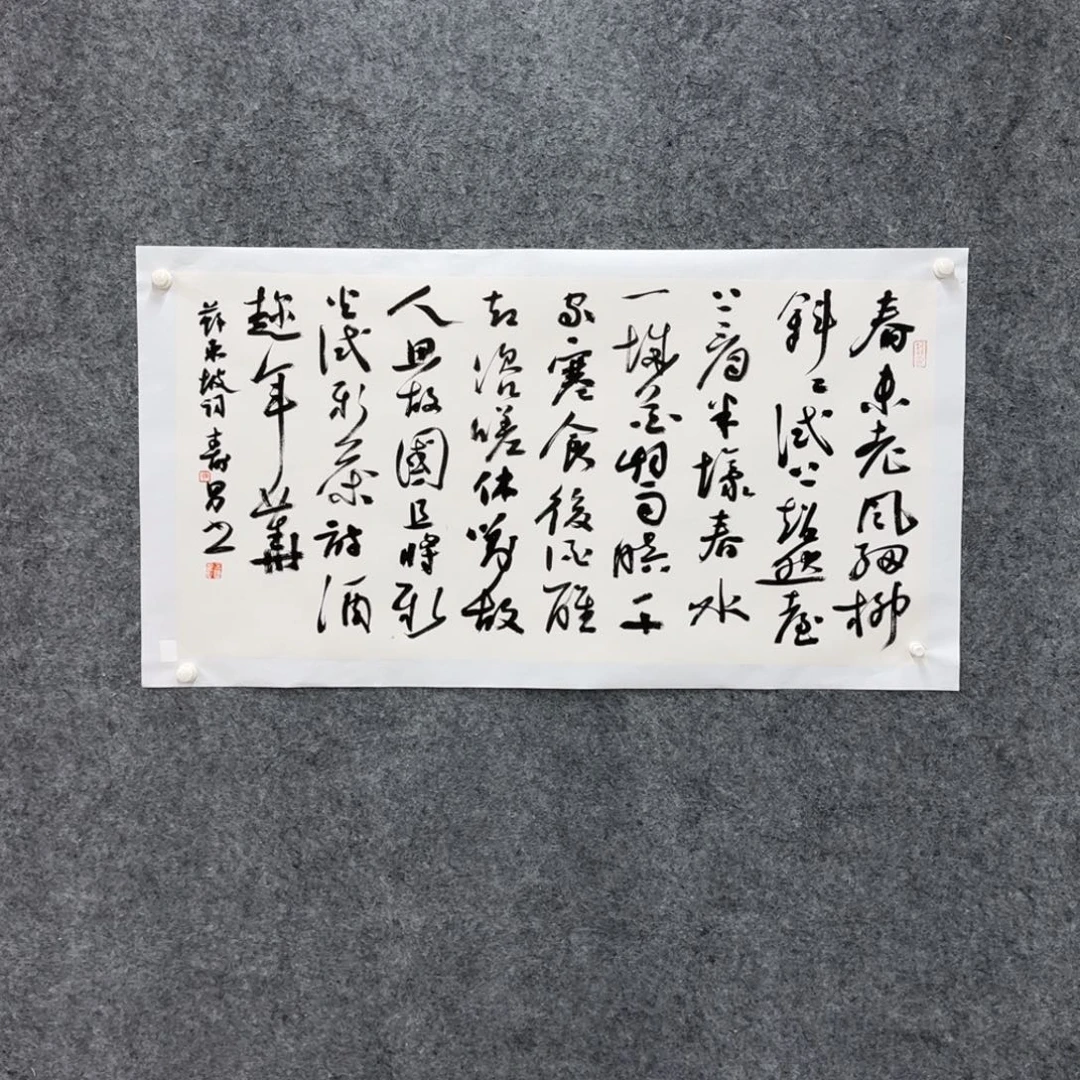 春未老風細柳
斜〻試上超然臺
上看半壕春水
一城花烟雨暗千
家寒食後酒醒
却咨嗟休對故
人思故國且將新
火試新茶詩酒
趁年華
蘇東坡詞壽昌书